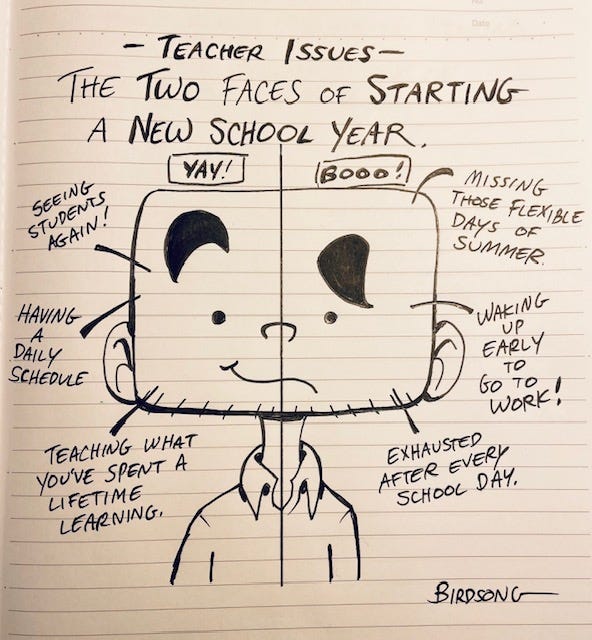 No
Date
- TEACHER ISSUES -
THE TWO FACES OF STARTING
A NEW SCHOOL YEAR.
YAY!
BOOO!
SEEING
STUDENTS
AGAIN!
HAVING
A
DAILY
SCHEDULE
TEACHING WHAT
YOU'VE SPENT A
LIFETIME
LEARNING.
MISSING
THOSE FLEXIBLE
DAYS OF
SUMMER.
WAKING
UP
EARLY
TO
GO TO
WORK!
EXHAUSTED
AFTER EVERY
SCHOOL DAY.
BIRDSONG